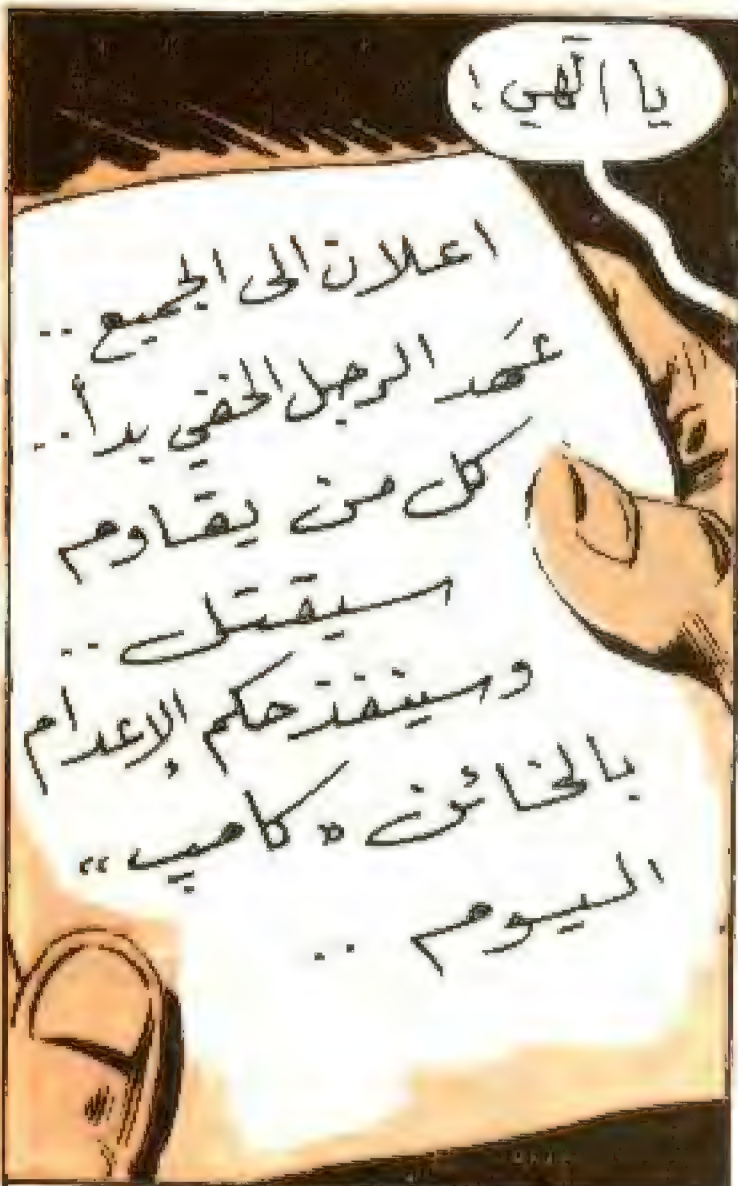 يا الهي !
اعلان الى الجميع ..
عهد الرجل الخفي بدأ ..
كل من يقاوم
سيقتل ..
وسينفذ حكم الإعدام
بالخائن « كامب »
اليوم ..